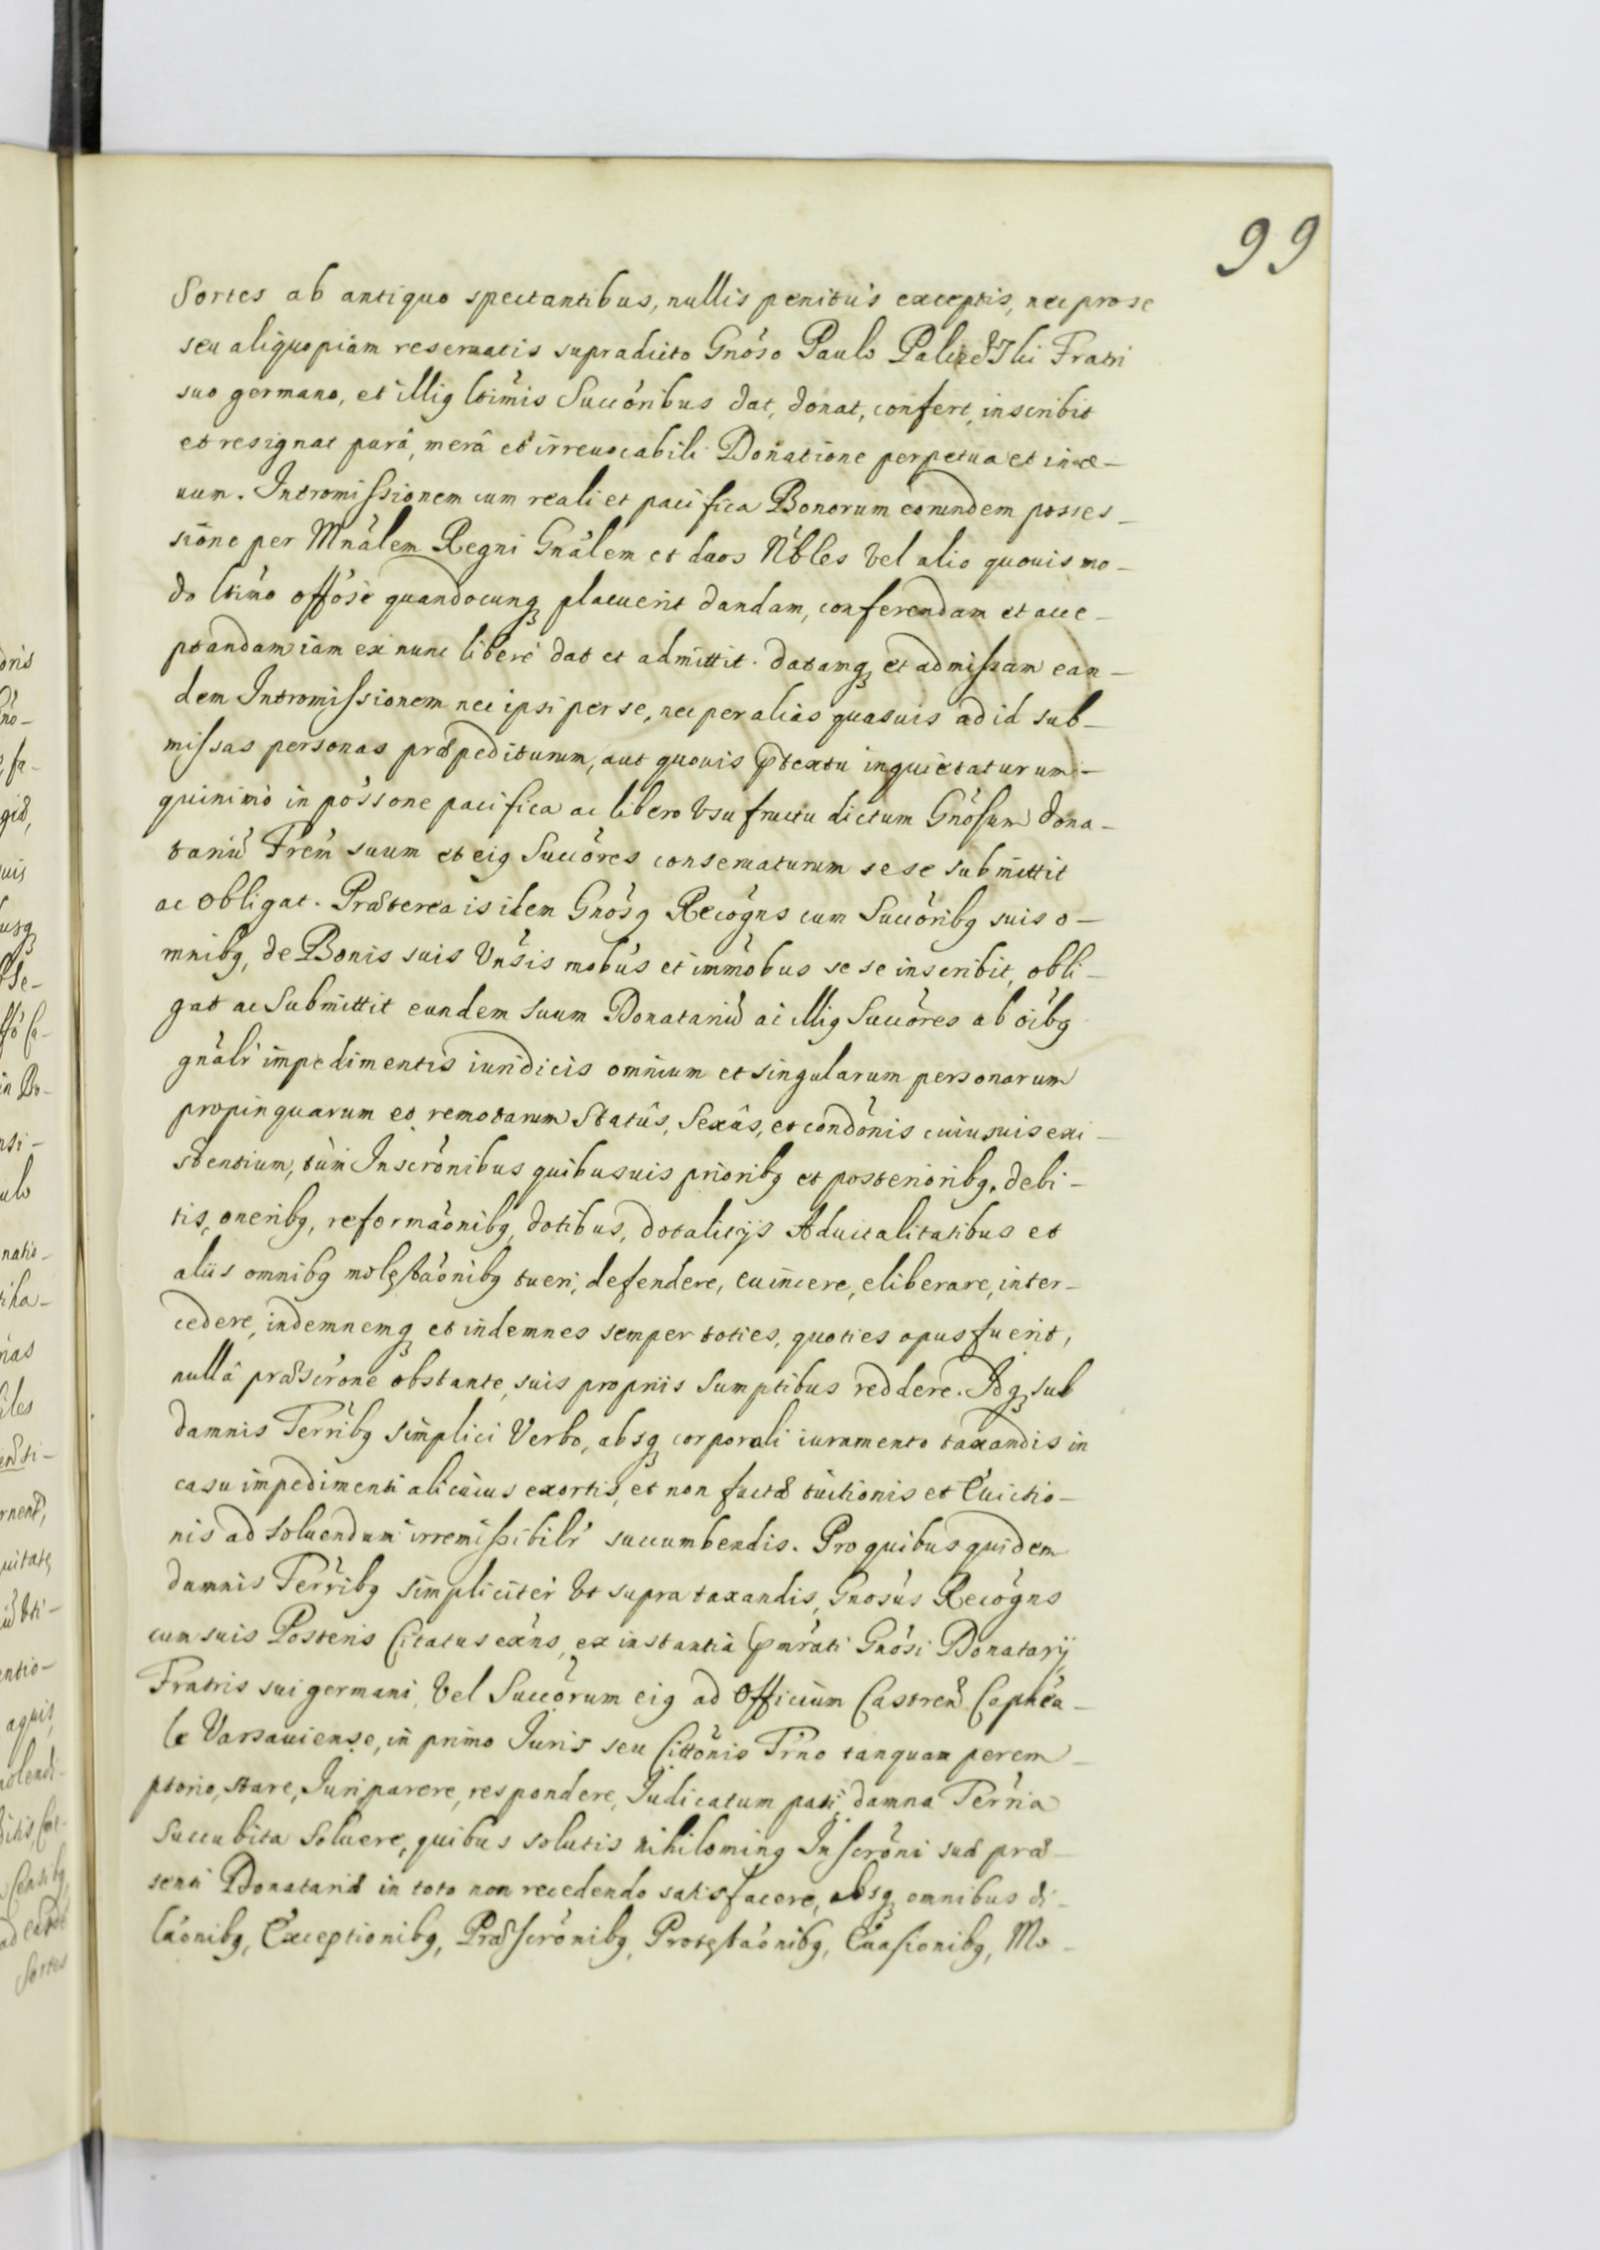 99
Sortes ab antiquo spectantibus, nullis penitus exceptis, nec pro se
seu aliquopiam reseruatis supradicto Gnoso Paulo Fratri
suo germano, et illiq ltimis Succoribus dat, donat, confert, inscribit
et resignat purâ, merâ et irreuocabili Donatione perpetua et in æ-
uum. Intromissionem cum reali et pacifica Bonorum eorundem posses-
sione per Mnalem Regni Gnalem et duos Nobles Vel alio quouis mo-
do ltimo offose quandocunq placuerit dandam, conferendam et acce-
ptandam iam ex nunc liberè dat et admittit. Datamq et admissam ean-
dem Intromissionem nec ipsi per se, nec per alias quasuis ad id sub-
missas personas præpediturum, aut quouis ptextu inquietaturum-
quinimò in possone pacifica ac libero Vsufructu dictum Gnosum Dona-
tariũ Frem suum et eiq Succores conseruaturum sese submittit
ac obligat. Præterea is idem Gnosq Recogns cum Succoribq suis o-
mnibq, de Bonis suis Vnsis mobus et immobus sese inscribit, obli-
gat ac submittit eundem suum Donatariũ ac illiq Succores ab oibq
gnalr impedimentis iuridicis omnium et singularum personarum
propinquarum et remotarum Statûs, Sexûs, et condonis cuiusuis exi-
stentium, tum Inscronibus quibusuis prioribq et posterioribq, debi-
tis, oneribq, reformaonibq, dotibus, dotalitijs Aduitalitatibus et
aliis omnibq molestaonibq tueri, defendere, euincere, eliberare, inter-
cedere, indemnemq et indemnes semper toties, quoties opus fuerit,
nullâ præscrone obstante, suis propriis sumptibus reddere. Idq sub
damnis Terribq simplici Verbo, absq corporali iuramento taxandis in
casu impedimenti alicuius exortis, et non factæ tuitionis et Euictio-
nis ad soluendum irremissibilr succumbendis. Pro quibus quidem
damnis Terribq simpliciter Vt supra taxandis, Gnosus Recogns
cum suis Posteris Citatus exns, ex instantia pmrati Gnosi Donatarij
Fratris sui germani, Vel Succorum eiq ad Officium Castren Capnea-
le Varsauiense, in primo Iuris seu Cittonis Trno tanquam perem-
ptorio, stare, Iuri parere, respondere, Iudicatum pati, damna Terria
Succubita Soluere, quibus solutis nihilominq Inscroni suæ præ-
senti Donataria in toto non recedendo satisfacere, absq omnibus di-
laonibq, Exceptionibq, Præscronibq, Protestaonibq, Euasionibq, Mo-